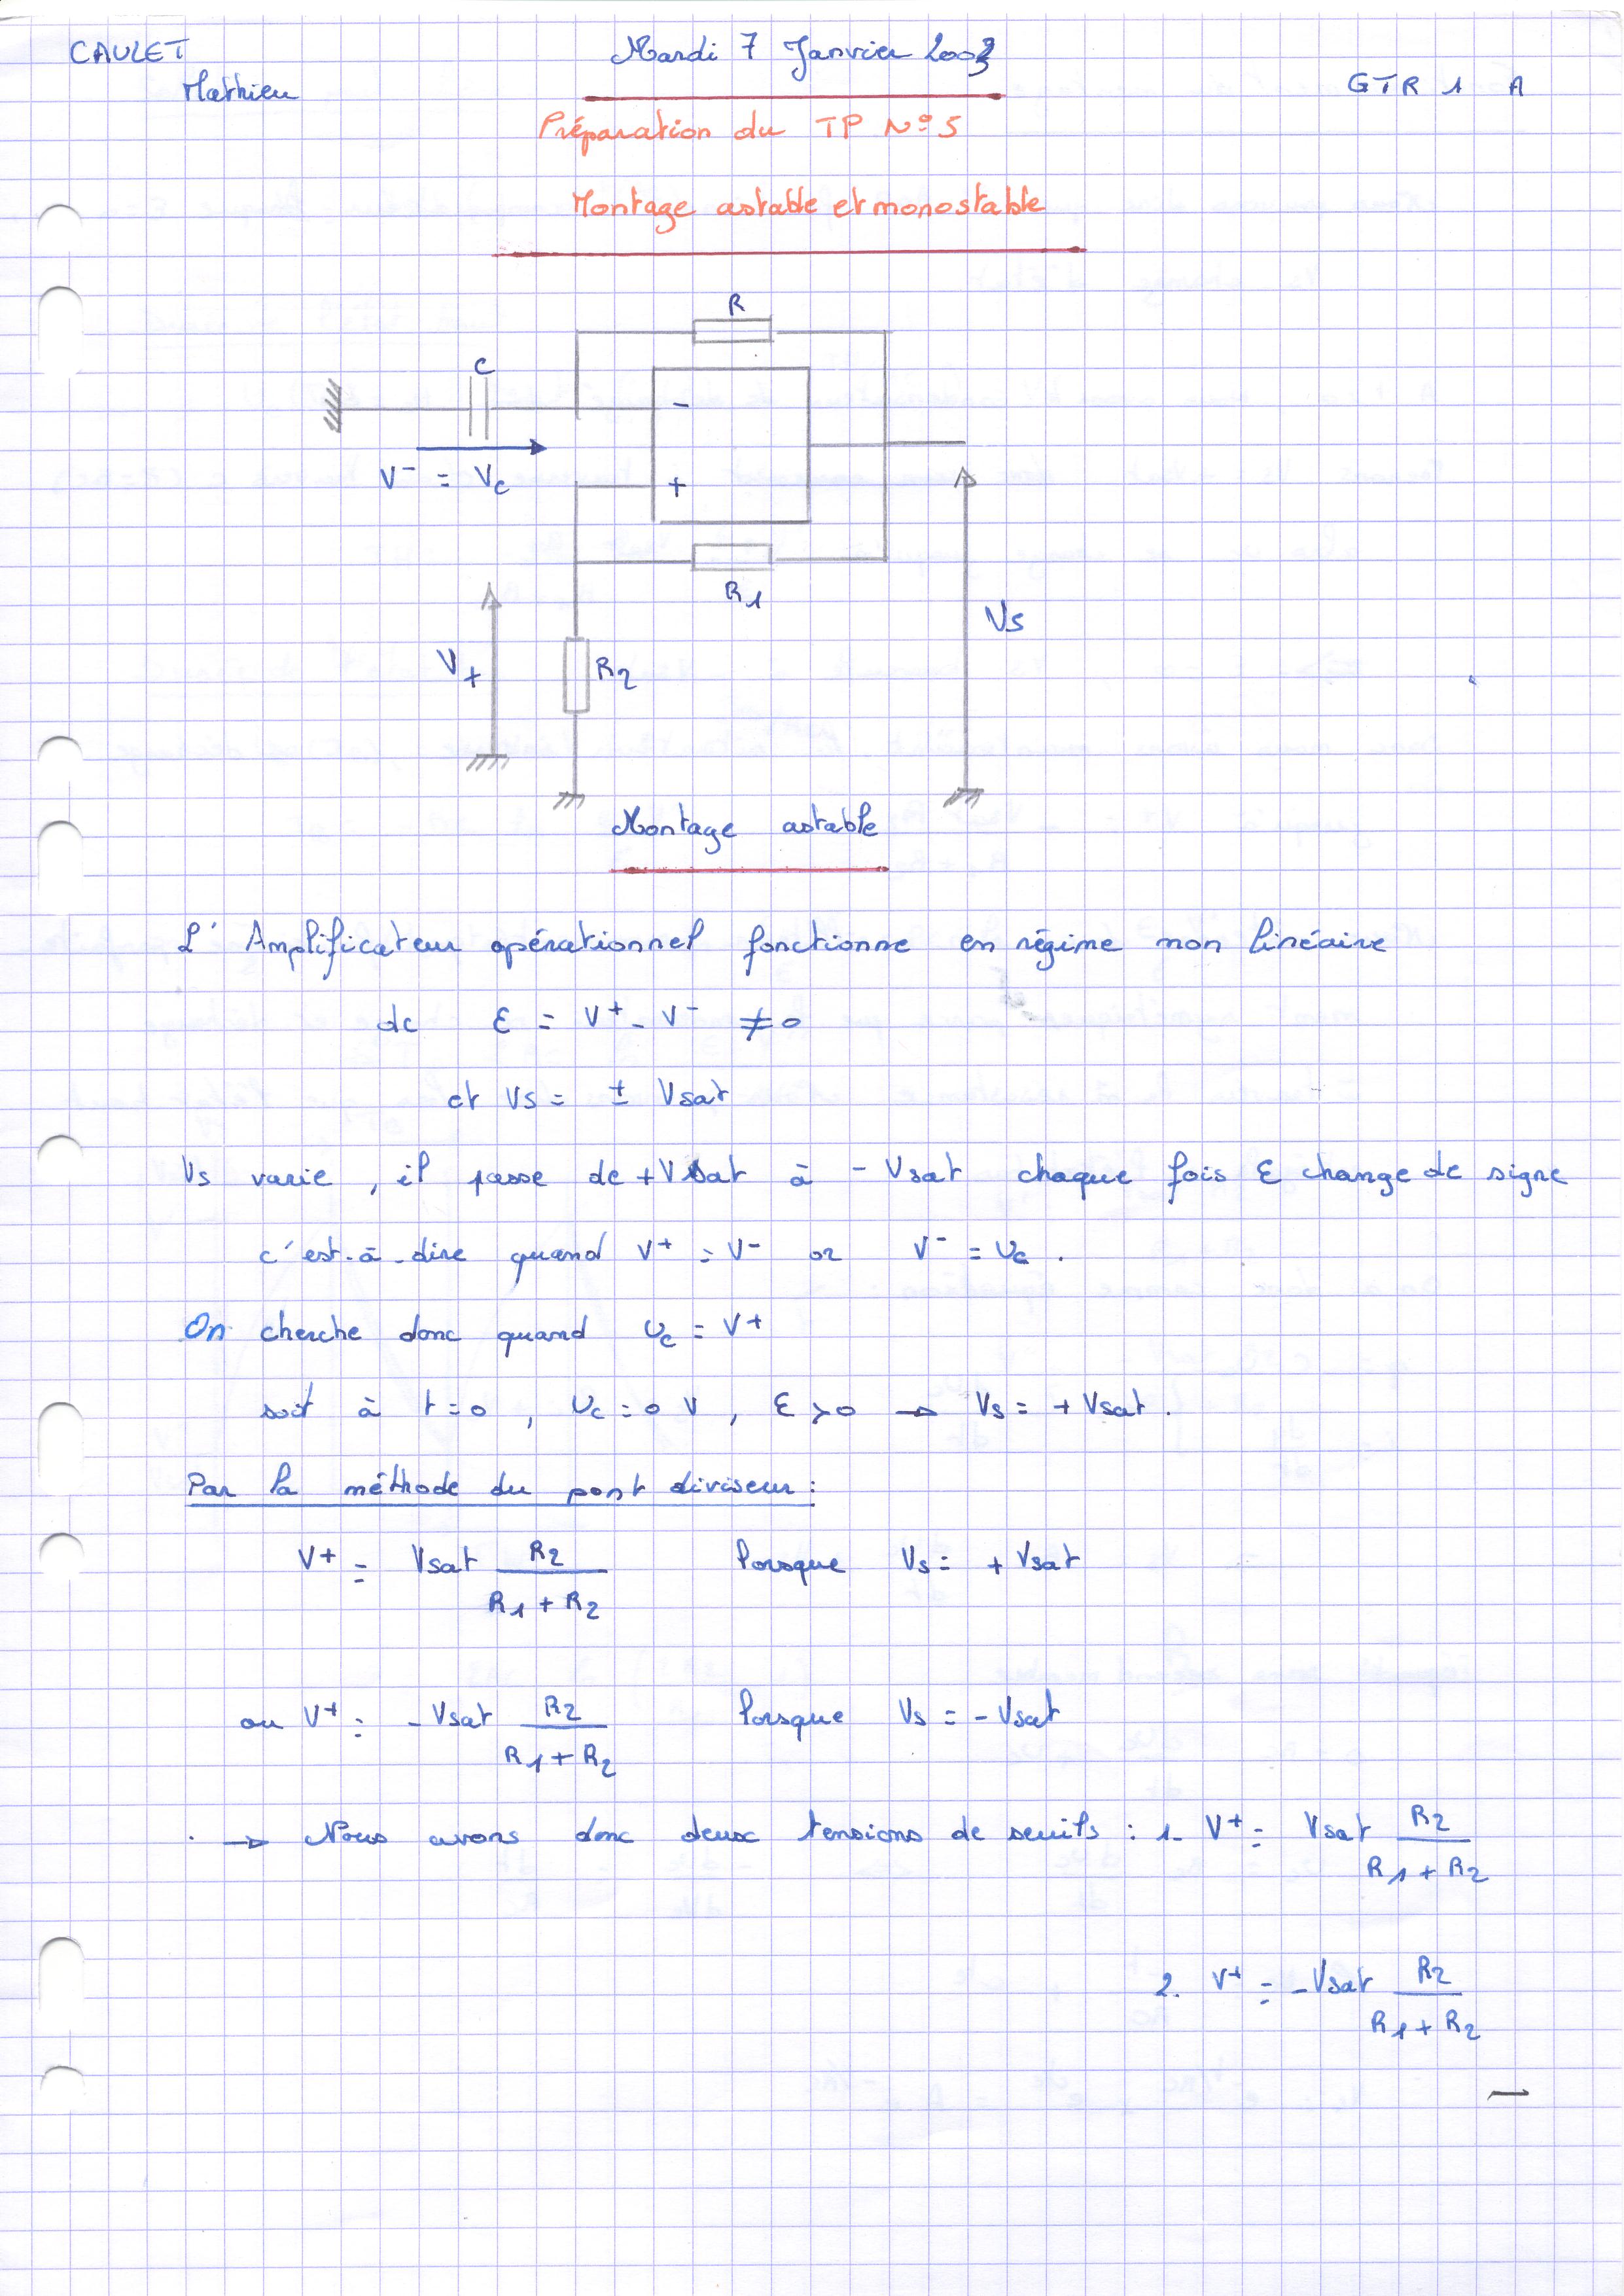 CAULET
Mardi 7 Janvier 2003
Mathieu
GTR 1 A
Préparation du TP N° 5
Montage astable et monostable
R
C
-
V⁻ = Vc
+
R1
Vs
V+
R2
Montage astable
L' Amplificateur opérationnel fonctionne en régime non linéaire
dc ε = V⁺ - V⁻ ≠ 0
et Vs = ± Vsat
Vs varie , il passe de +Vsat à - Vsat chaque fois ε change de signe
c'est-à-dire quand V⁺ = V⁻ or V⁻ = Uc .
On cherche donc quand Uc = V⁺
soit à t=0 , Uc = 0 V , ε > 0 → Vs = + Vsat .
Par la méthode du pont diviseur :
V⁺ = Vsat R2 / (R1 + R2) lorsque Vs = + Vsat
ou V⁺ = - Vsat R2 / (R1 + R2) lorsque Vs = - Vsat
. → Nous avons donc deux tensions de seuils : 1- V⁺ = Vsat R2 / (R1 + R2)
2. V⁺ = - Vsat R2 / (R1 + R2)